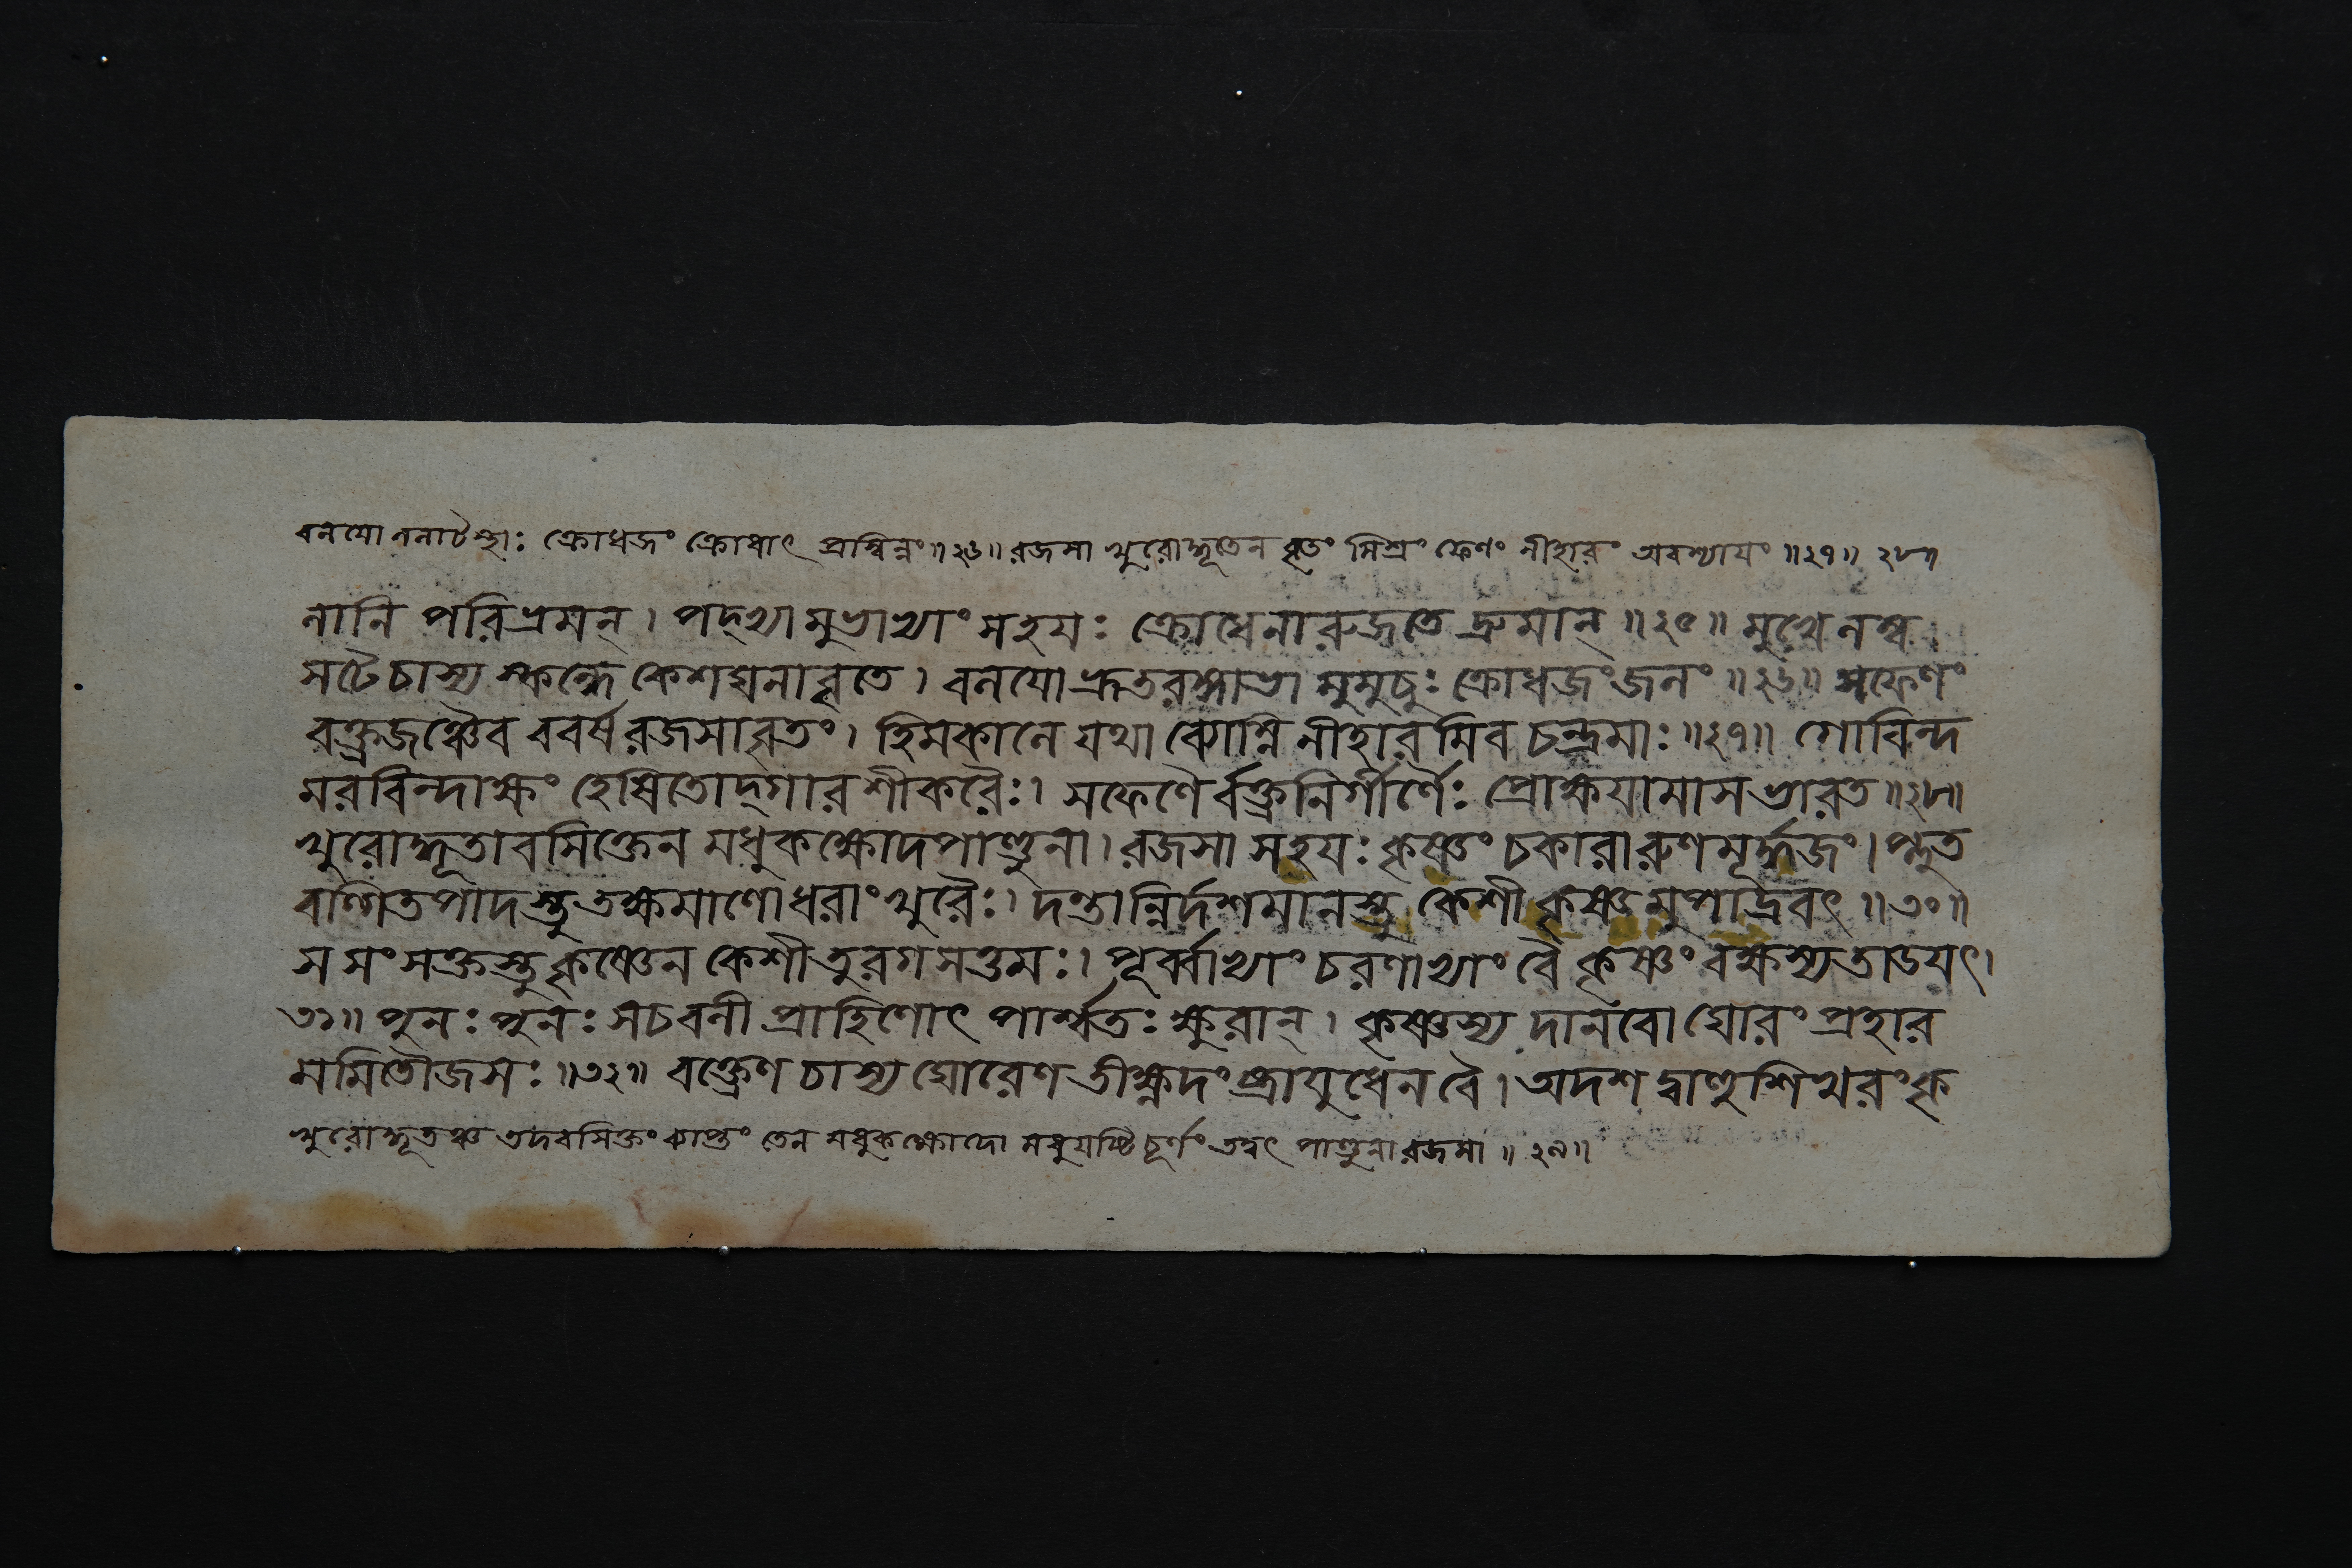 বলযো ললাটস্থাঃ ক্রোধজং ক্রোধাৎ প্রস্বিন্নং ॥২৬॥ রজসা খুরোদ্ধূতেন বৃতং মিশ্রং ফেণং নীহারং অবশ্যাযং ॥২৭॥ ২৮৭
নানি পরিভ্রমন্ । পদ্ভ্যামুভাভ্যাং সহযঃ ক্রোধেনারুজতে দ্রুমান্ ॥২৫॥ মুখেলম্ব
সটৈ চাস্য স্কন্ধে কেশঘনাবৃতে । বলযোভ্রূতরঙ্গাভা মুমুচুঃ ক্রোধজংজলং ॥২৬॥ সফেণং
বক্ত্রজঞ্চৈব ববর্ষ রজসাবৃতং । হিমকালে যথা ব্যোম্নি নীহারমিব চন্দ্রমাঃ ॥২৭॥ গোবিন্দ
মরবিন্দাক্ষং হেষিতোদ্গার শীকরৈঃ । সফেণৈর্বক্ত্রনির্গীর্ণৈঃ প্রোক্ষযামাস ভারত ॥২৮॥
খুরোদ্ধূতাবসিক্তেন মধুকক্ষোদপাণ্ডুনা । রজসা সহযঃ কৃষ্ণং চকারারুণমূর্দ্ধজং । প্লুত
বল্গিতপাদস্তু তক্ষমাণোধরাং খুরৈঃ । দন্তান্নির্দশমানস্তু কেশী কৃষ্ণমুপাদ্রবৎ ॥৩০॥
স সংসক্তস্তু কৃষ্ণেন কেশী তুরগসত্তমঃ । পূর্ব্বাভ্যাং চরণাভ্যাং বৈ কৃষ্ণং বক্ষস্যতাডযৎ ।
৩১॥ পুনঃ পুনঃ সচবলী প্রাহিণোৎ পার্শ্বতঃ ক্ষুরান্ । কৃষ্ণস্য দানবো ঘোরং প্রহার
মমিতৌজসঃ ॥৩২॥ বক্ত্রেণ চাস্য ঘোরেণ তীক্ষ্ণদংষ্ট্রাযুধেন বৈ । অদশদ্বাহুশিখরং কৃ
খুরোদ্ধূতঞ্চ তদবসিক্তং ব্যাপ্তং তেন মধুকক্ষোদো মধুযষ্টিচূর্ণং তদ্বৎ পাণ্ডুনা রজসা ॥২৯॥